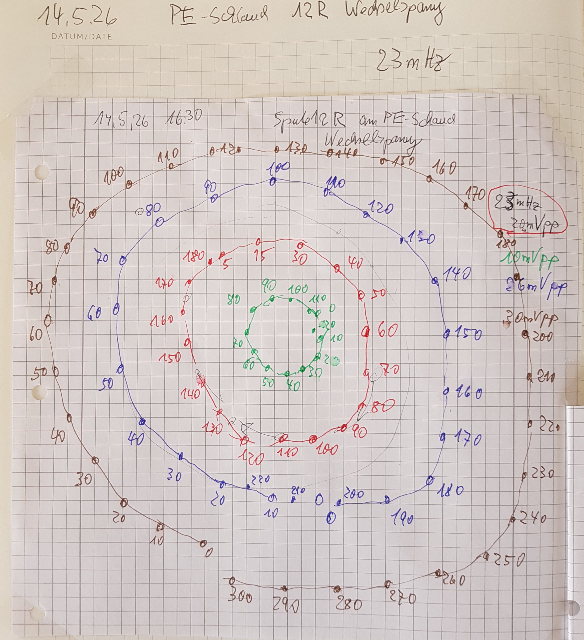 14.5.26 PE-Schaud 12R Wechselspang
DATUM/DATE
23mHz
14.5.26 16:30 Spule 12R am PE-Schaud
Wechselspang
23mHz
20mVpp
10mVpp
26mVpp
30mVpp
0 10 20 30 40 50 60 70 80 90 100 110 120 130 140 150 160 170 180 200 210 220 230 240 250 260 270 280 290 300
0 10 20 30 40 50 60 70 80 90 100 110 120 130 140 150 160 170 180 190 200 210 220
5 15 30 40 50 60 70 80 90 100 110 120 130 140 150 160 170 180
0 10 20 30 40 50 60 70 80 90 100 110